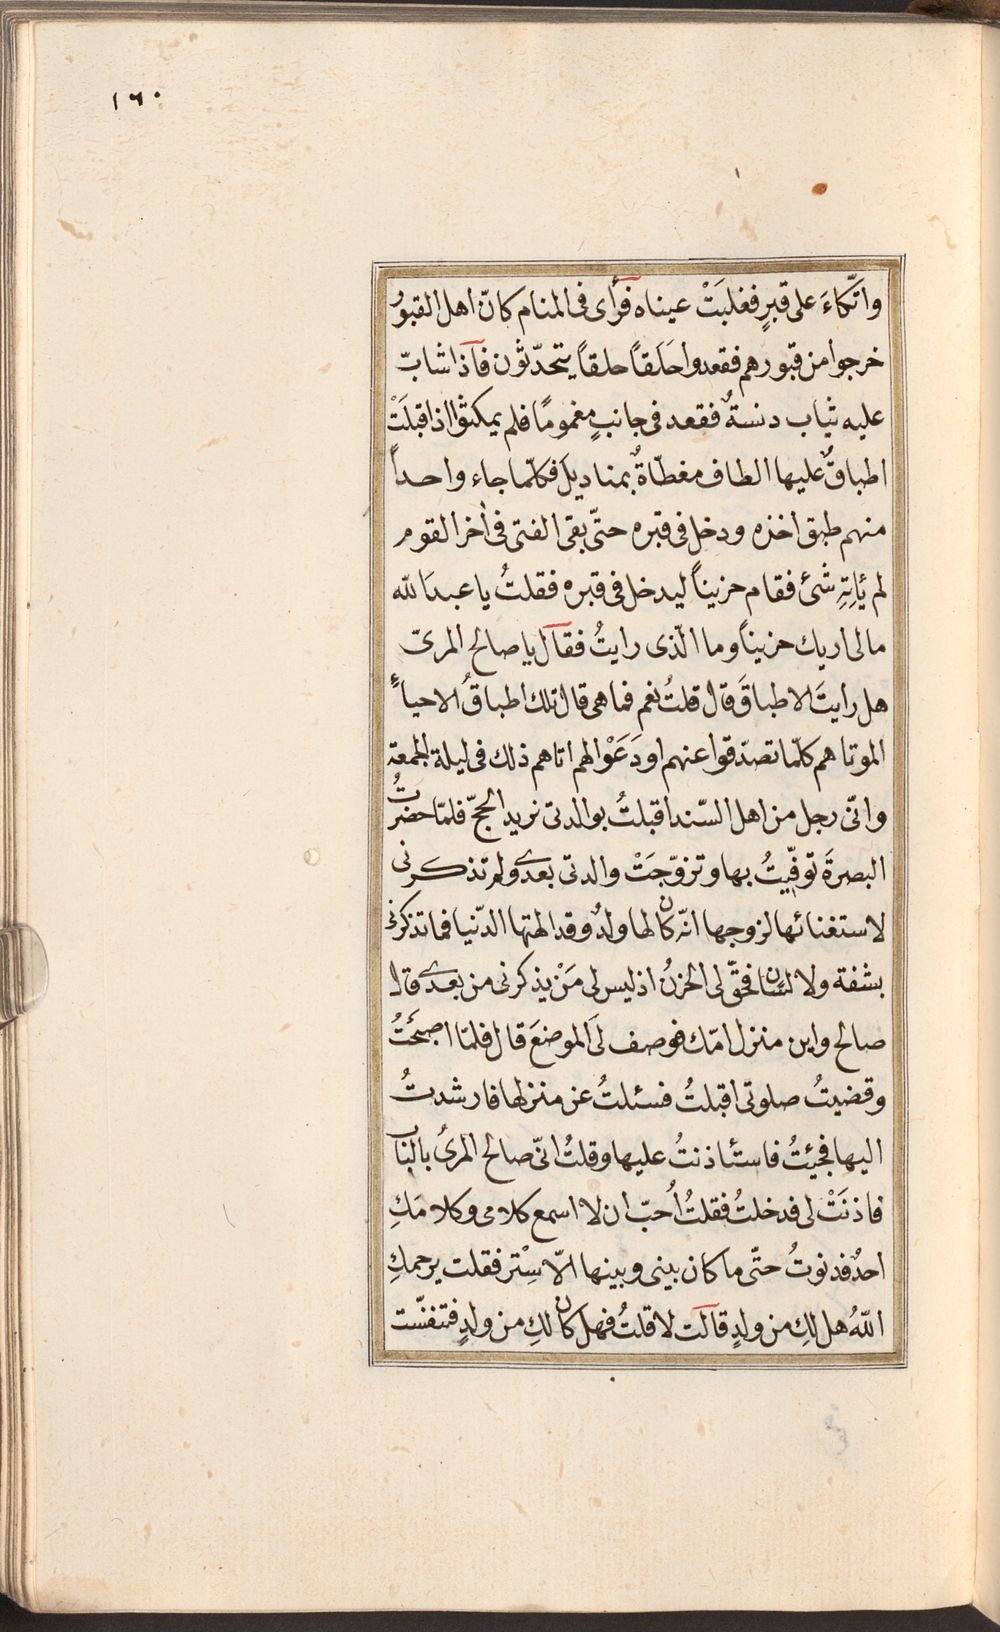 ١٦٠
واتّكاءَ على قبرٍ فغلبَتْ عيناه فرأى فى المنام كانّ اهل القبورُ
خرجوا من قبورهم فقعدوا حَلَقاً حلقاً يتحدّثون فآذا شابّ
عليه ثياب دنسةٌ فقعد فى جانبٍ مغمومًا فلم يمكثوا اذا قبلَتْ
اطباقٌ عليها الطاف مغطّاةٌ بمناديلَ فكلّما جاء واحداً
منهم طبق اخذه ودخل فى قبره حتّى بقى الفتى فى أخر القوم
لم يُاتِهِ شئ فقام حزيناً ليدخل فى قبره فقلتُ يا عبدَ اللّه
مالى اريك حزيناً وما الّذى رايتُ فقآل يا صالح المرىّ
هل رايتَ الاطباقَ قال قلتُ نعم فما هى قال تلك اطباقُ الاحياءٍ
الموتاهم كلّما تصدّقوا عنهم او دَعَوْا لهم اتاهم ذلك فى ليلة الجمعة
وانّى رجل من اهل السّند اقبلتُ بوالدتى نريد الحجّ فلمّا حضرتُ
البصرةَ توفّيتُ بها وتزوّجَتْ والدتى بعدى ولم تذكرنى
لاستغنائها لزوجها انّه كان لها ولدٌ وقد الهتها الدّنيا فما تذكرنى
بشفة ولا لسان فحقّ لى الحزنُ اذ ليس لى مَنْ يذكرنى من بعدى قال
صالح واين منزل امّك فوصف لىَ الموضعَ قال فلمّا اصبحَتُ
وقضيتُ صلوتى اقبلتُ فسئلتُ عن منزلها فارشدتُ
اليها فجيئتُ فاستئاذنتُ عليها وقلتُ انّى صالح المرىُ بالباب
فاذنَتْ لى فدخلتُ فقلتُ أُحبّ ان لا اسمع كلامى وكلامَكِ
احدٌ فدنوتُ حتّى ما كان بينى وبينها الاّ سِتْر فقلت يرحمكِ
اللّهُ هل لكِ من ولدٍ قالَت لا قلتُ فهل كان لكِ من ولدٍ فتنفّست